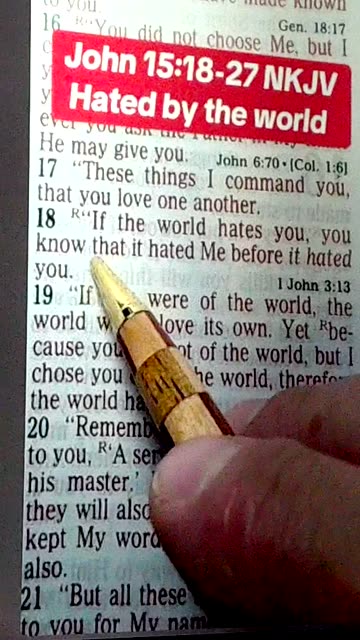 to you.
16 R"You did not choose Me, but I
Gen. 18:17
John 15:18-27 NKJV
Hated by the world
ever you ask the Father
He may give you.
John 6:70 • [Col. 1:6]
17 "These things I command you,
that you love one another.
18 R"If the world hates you, you
know that it hated Me before it hated
you.
1 John 3:13
19 "If were of the world, the
world love its own. Yet Rbe-
cause you of the world, but I
chose you the world,
the world
20
to you, R'A
his master.'
they will
kept My
also.
21 "But all these
to you for My